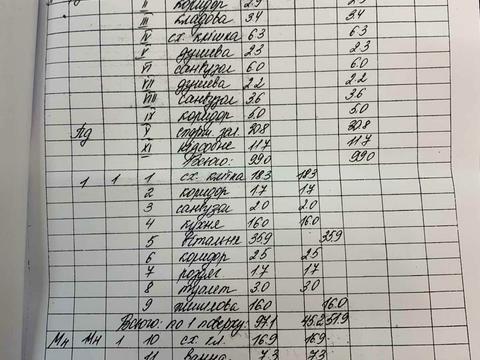 II коридор 2.9 2.9
III кладова 3.4 3.4
IV сх. клітка 6.3 6.3
V душева 2.3 2.3
VI санвузол 6.0 6.0
VII душева 2.2 2.2
VIII санвузол 3.6 3.6
IX коридор 5.0 5.0
Пд X спорт. зал. 30.8 30.8
XI підсобне 11.7 11.7
Всього: 99.0 99.0
1 1 1 сх. клітка 18.3 18.3
2 коридор 1.7 1.7
3 санвузол 2.0 2.0
4 кухня 16.0 16.0
5 вітальня 35.9 35.9
6 коридор 2.5 2.5
7 роздяг 1.7 1.7
8 туалет 3.0 3.0
9 житлова 16.0 16.0
Всього: по 1 поверху: 97.1 45.2 51.9
Мн Мн 1 10 сх. кл. 16.9 16.9
11 ванна 7.3 7.3